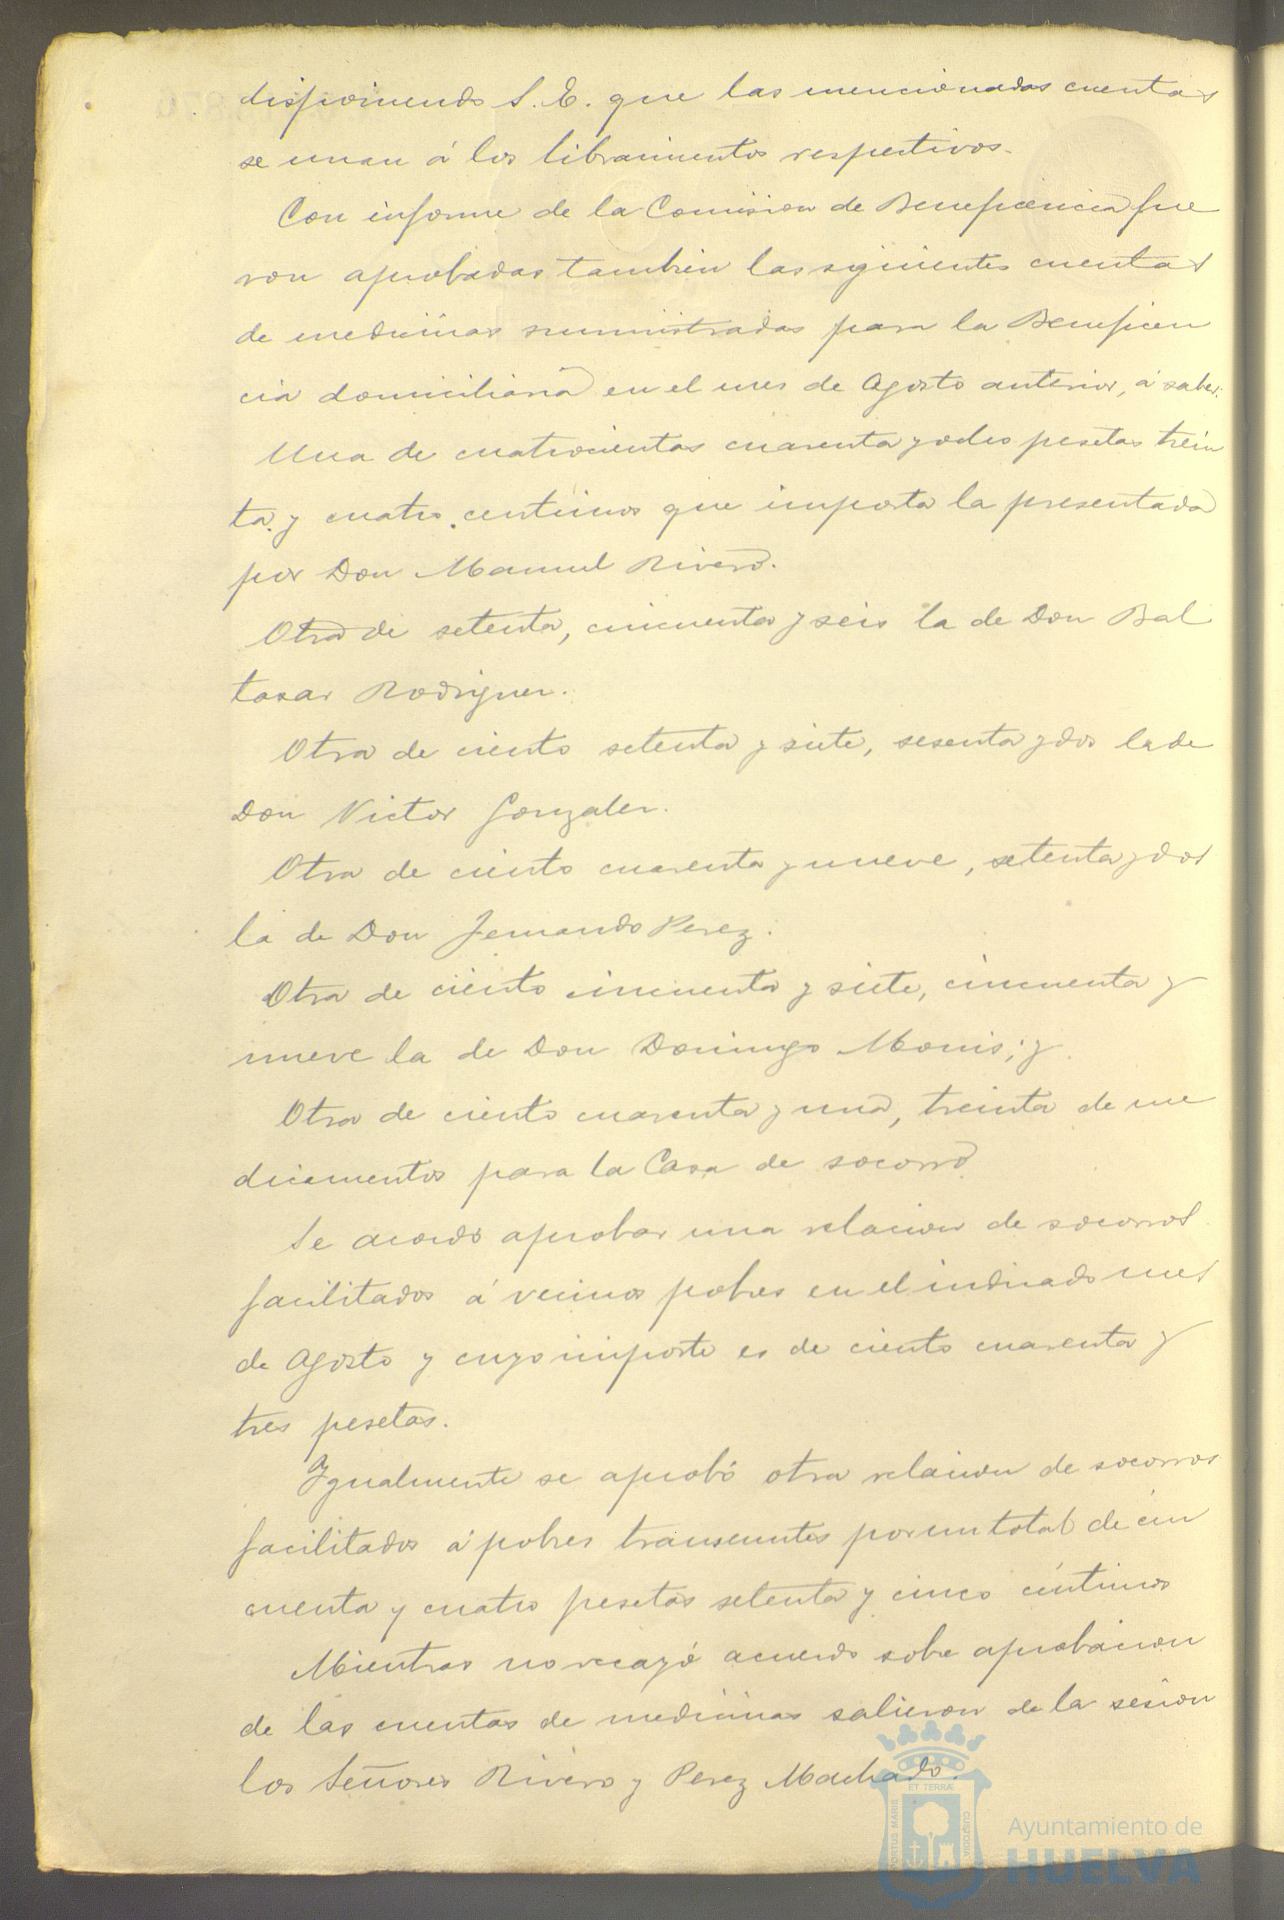 disponiendo S. E. que las mencionadas cuentas
se unan á los libramientos respectivos.
Con informe de la Comision de Beneficencia fue
ron aprobadas tambien las siguientes cuentas
de medicinas suministradas para la Beneficen
cia domiciliaria en el mes de Agosto anterior, á saber:
Una de cuatrocientas cuarenta y ocho pesetas trein
ta y cuatro centimos que importa la presentada
por Don Manuel Rivero.
Otra de setenta, cincuenta y seis la de Don Bal
tasar Rodriguez.
Otra de ciento setenta y siete, sesenta y dos la de
Don Victor Gonzalez.
Otra de ciento cuarenta y nueve, setenta y dos
la de Don Fernando Perez.
Otra de ciento cincuenta y siete, cincuenta y
nueve la de Don Domingo Monis; y
Otra de ciento cuarenta y una, treinta de me
dicamentos para la Casa de socorro
Se acordó aprobar una relacion de socorros
facilitados á vecinos pobres en el indicado mes
de Agosto y cuyo importe es de ciento cuarenta y
tres pesetas.
Igualmente se aprobó otra relacion de socorros
facilitados á pobres transeuntes por un total de cin
cuenta y cuatro pesetas setenta y cinco céntimos
Mientras no recayó acuerdo sobre aprobacion
de las cuentas de medicinas salieron de la sesion
los Señores Rivero y Perez Machado.
PORTUS MARIS ET TERRÆ CUSTODIA
Ayuntamiento de
HUELVA